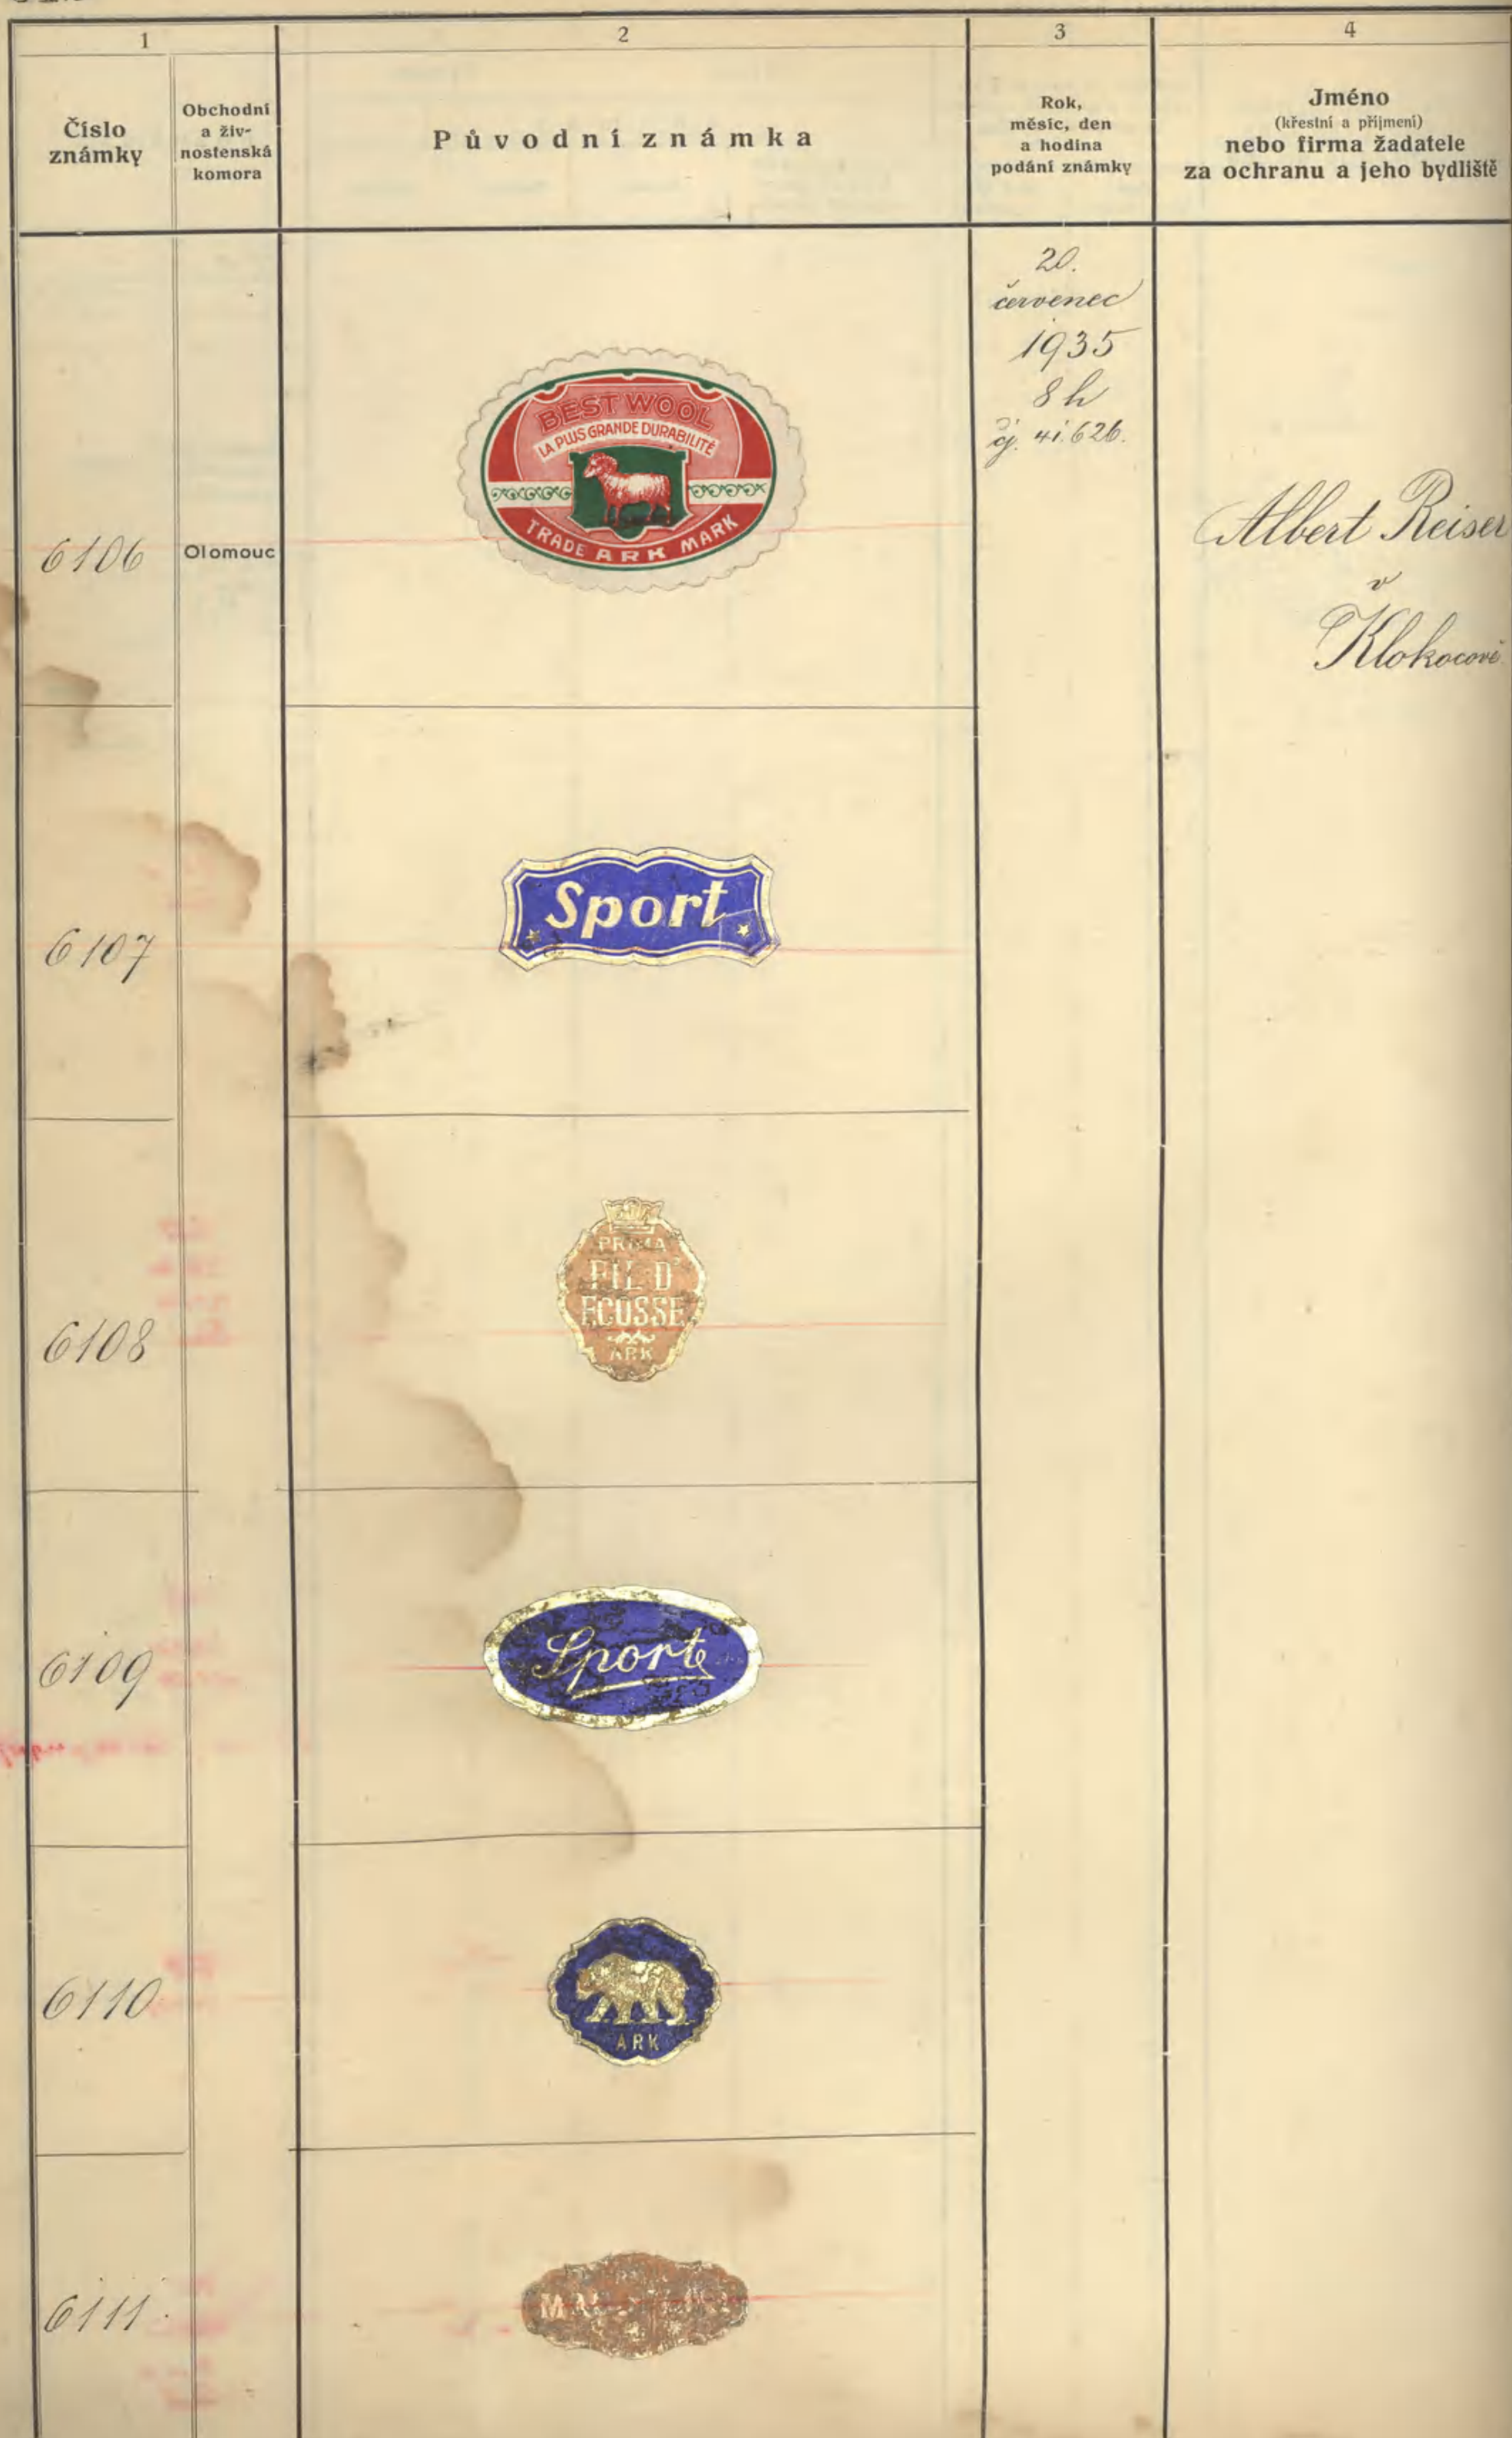 1
2
3
4
Číslo
známky
Obchodní
a živ-
nostenská
komora
Původní známka
Rok,
měsíc, den
a hodina
podání známky
Jméno
(křestní a příjmení)
nebo firma žadatele
za ochranu a jeho bydliště
6106
Olomouc
BEST WOOL
LA PLUS GRANDE DURABILITÉ
TRADE ARK MARK
20.
červenec
1935
8 h
čj. 41.626.
Albert Reiser
v
Klokocově
6107
Sport
6108
PRIMA
FIL D'
ECOSSE
ARK
6109
Sport
6110
ARK
6111